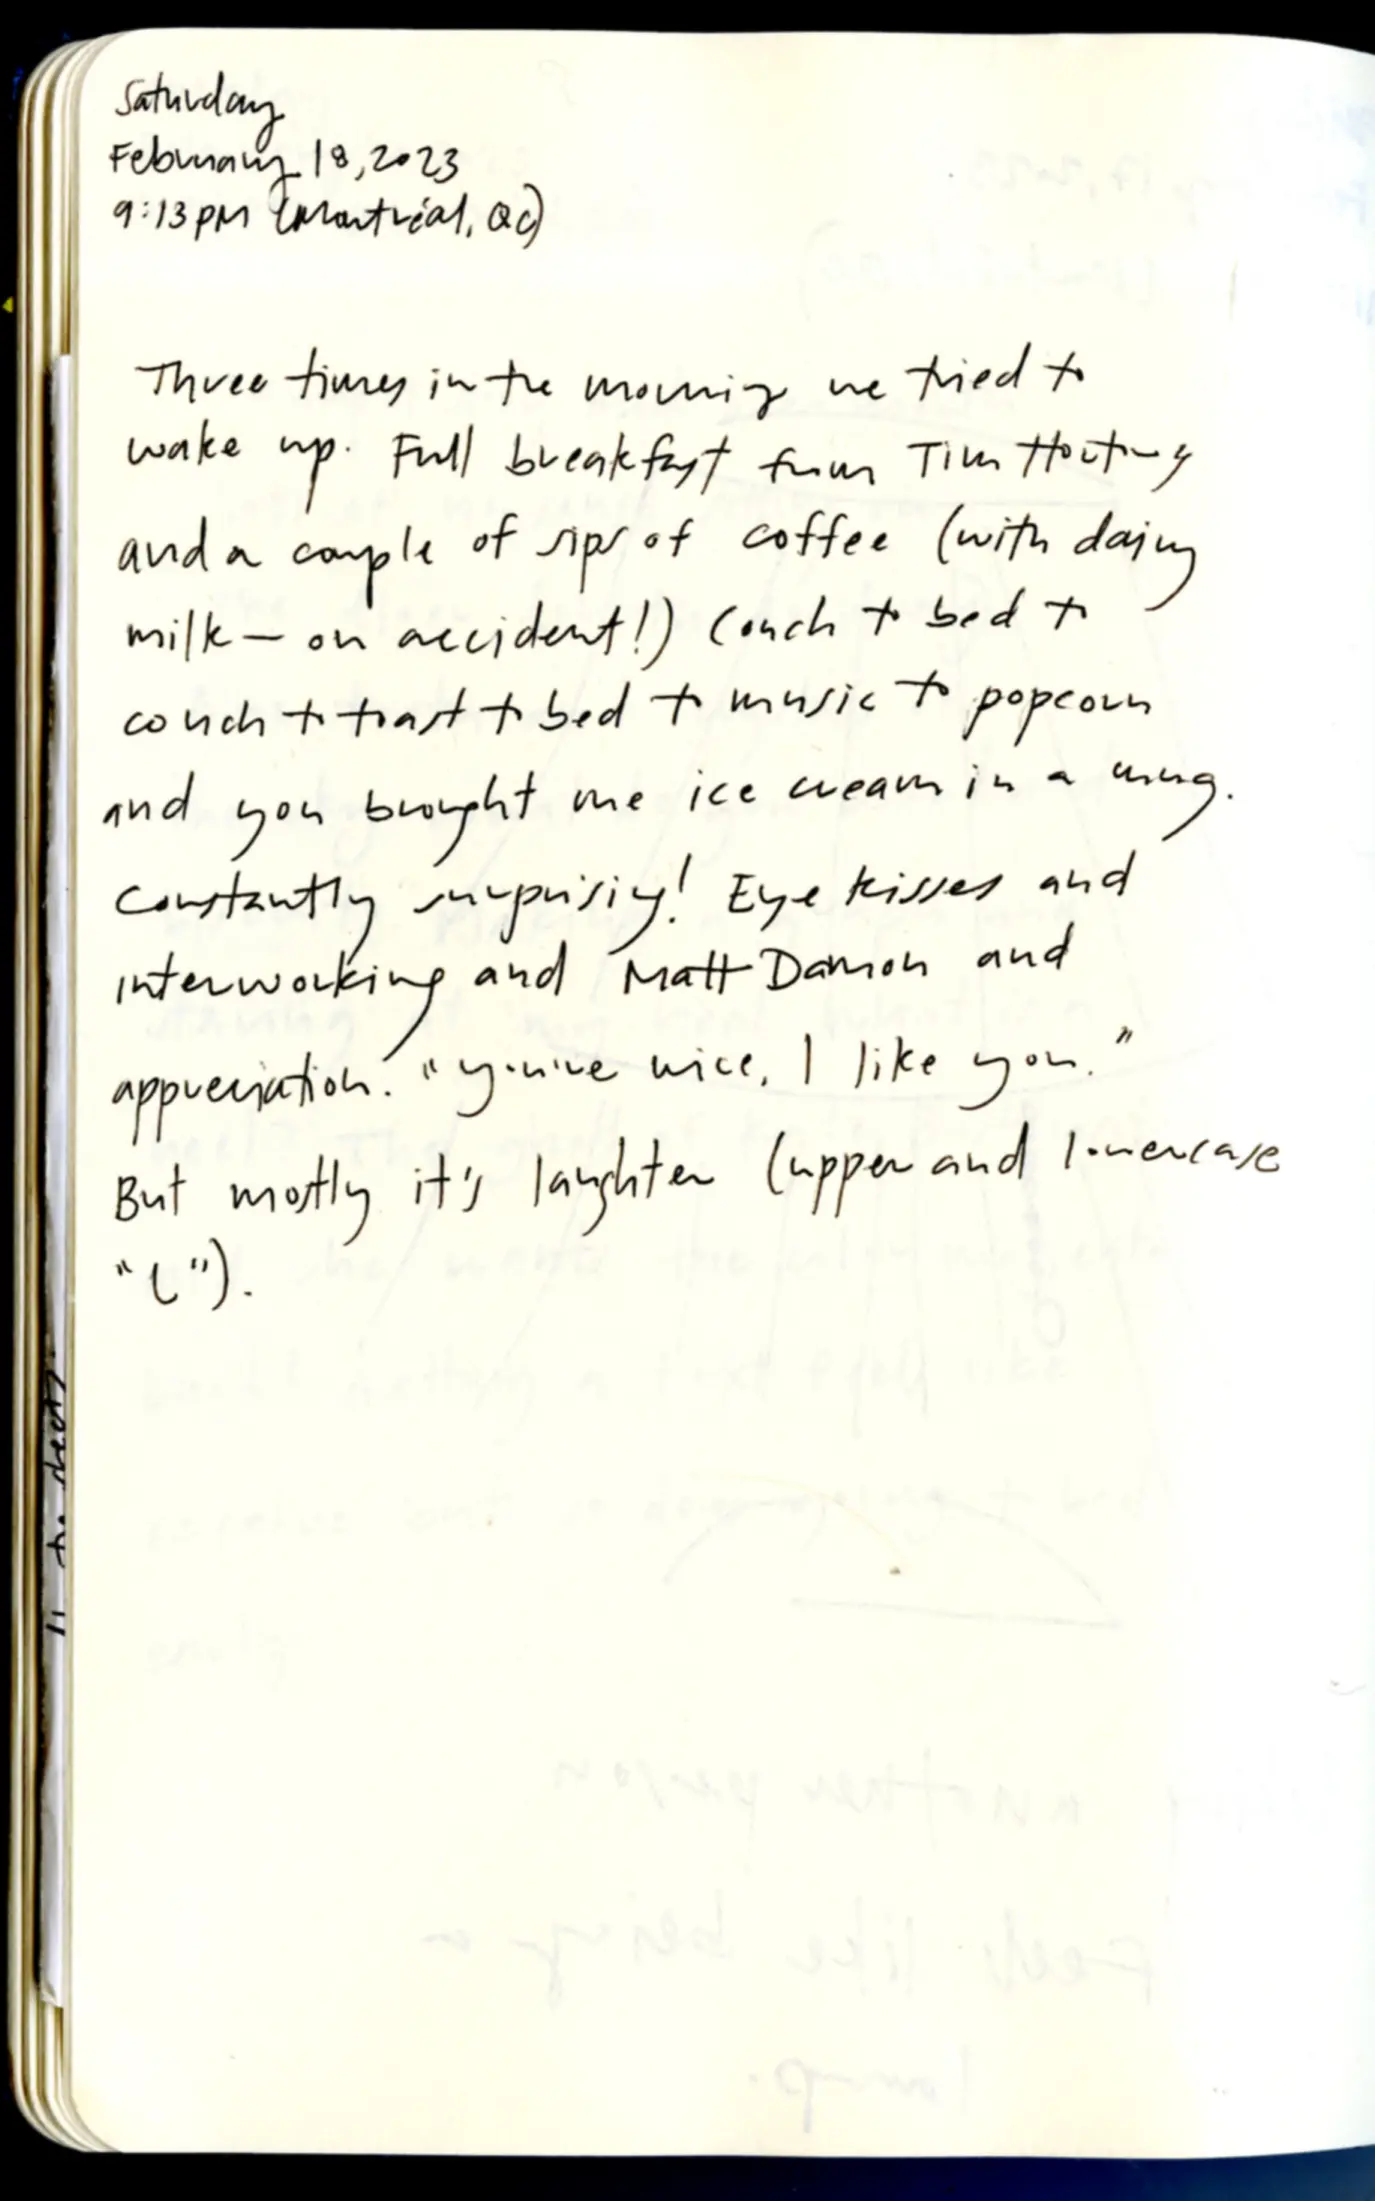 Saturday
February 18, 2023
9:13pm (Montréal, QC)
Three times in the morning we tried to
wake up. Full breakfast from Tim Hortons
and a couple of sips of coffee (with dairy
milk — on accident!) Couch to bed to
couch to toast to bed to music to popcorn
and you brought me ice cream in a mug.
Constantly surprising! Eye kisses and
interworking and Matt Damon and
appreciation. "You're nice, I like you."
But mostly it's laughter (upper and lowercase
"L").
another person
Feels like being a
lamp.